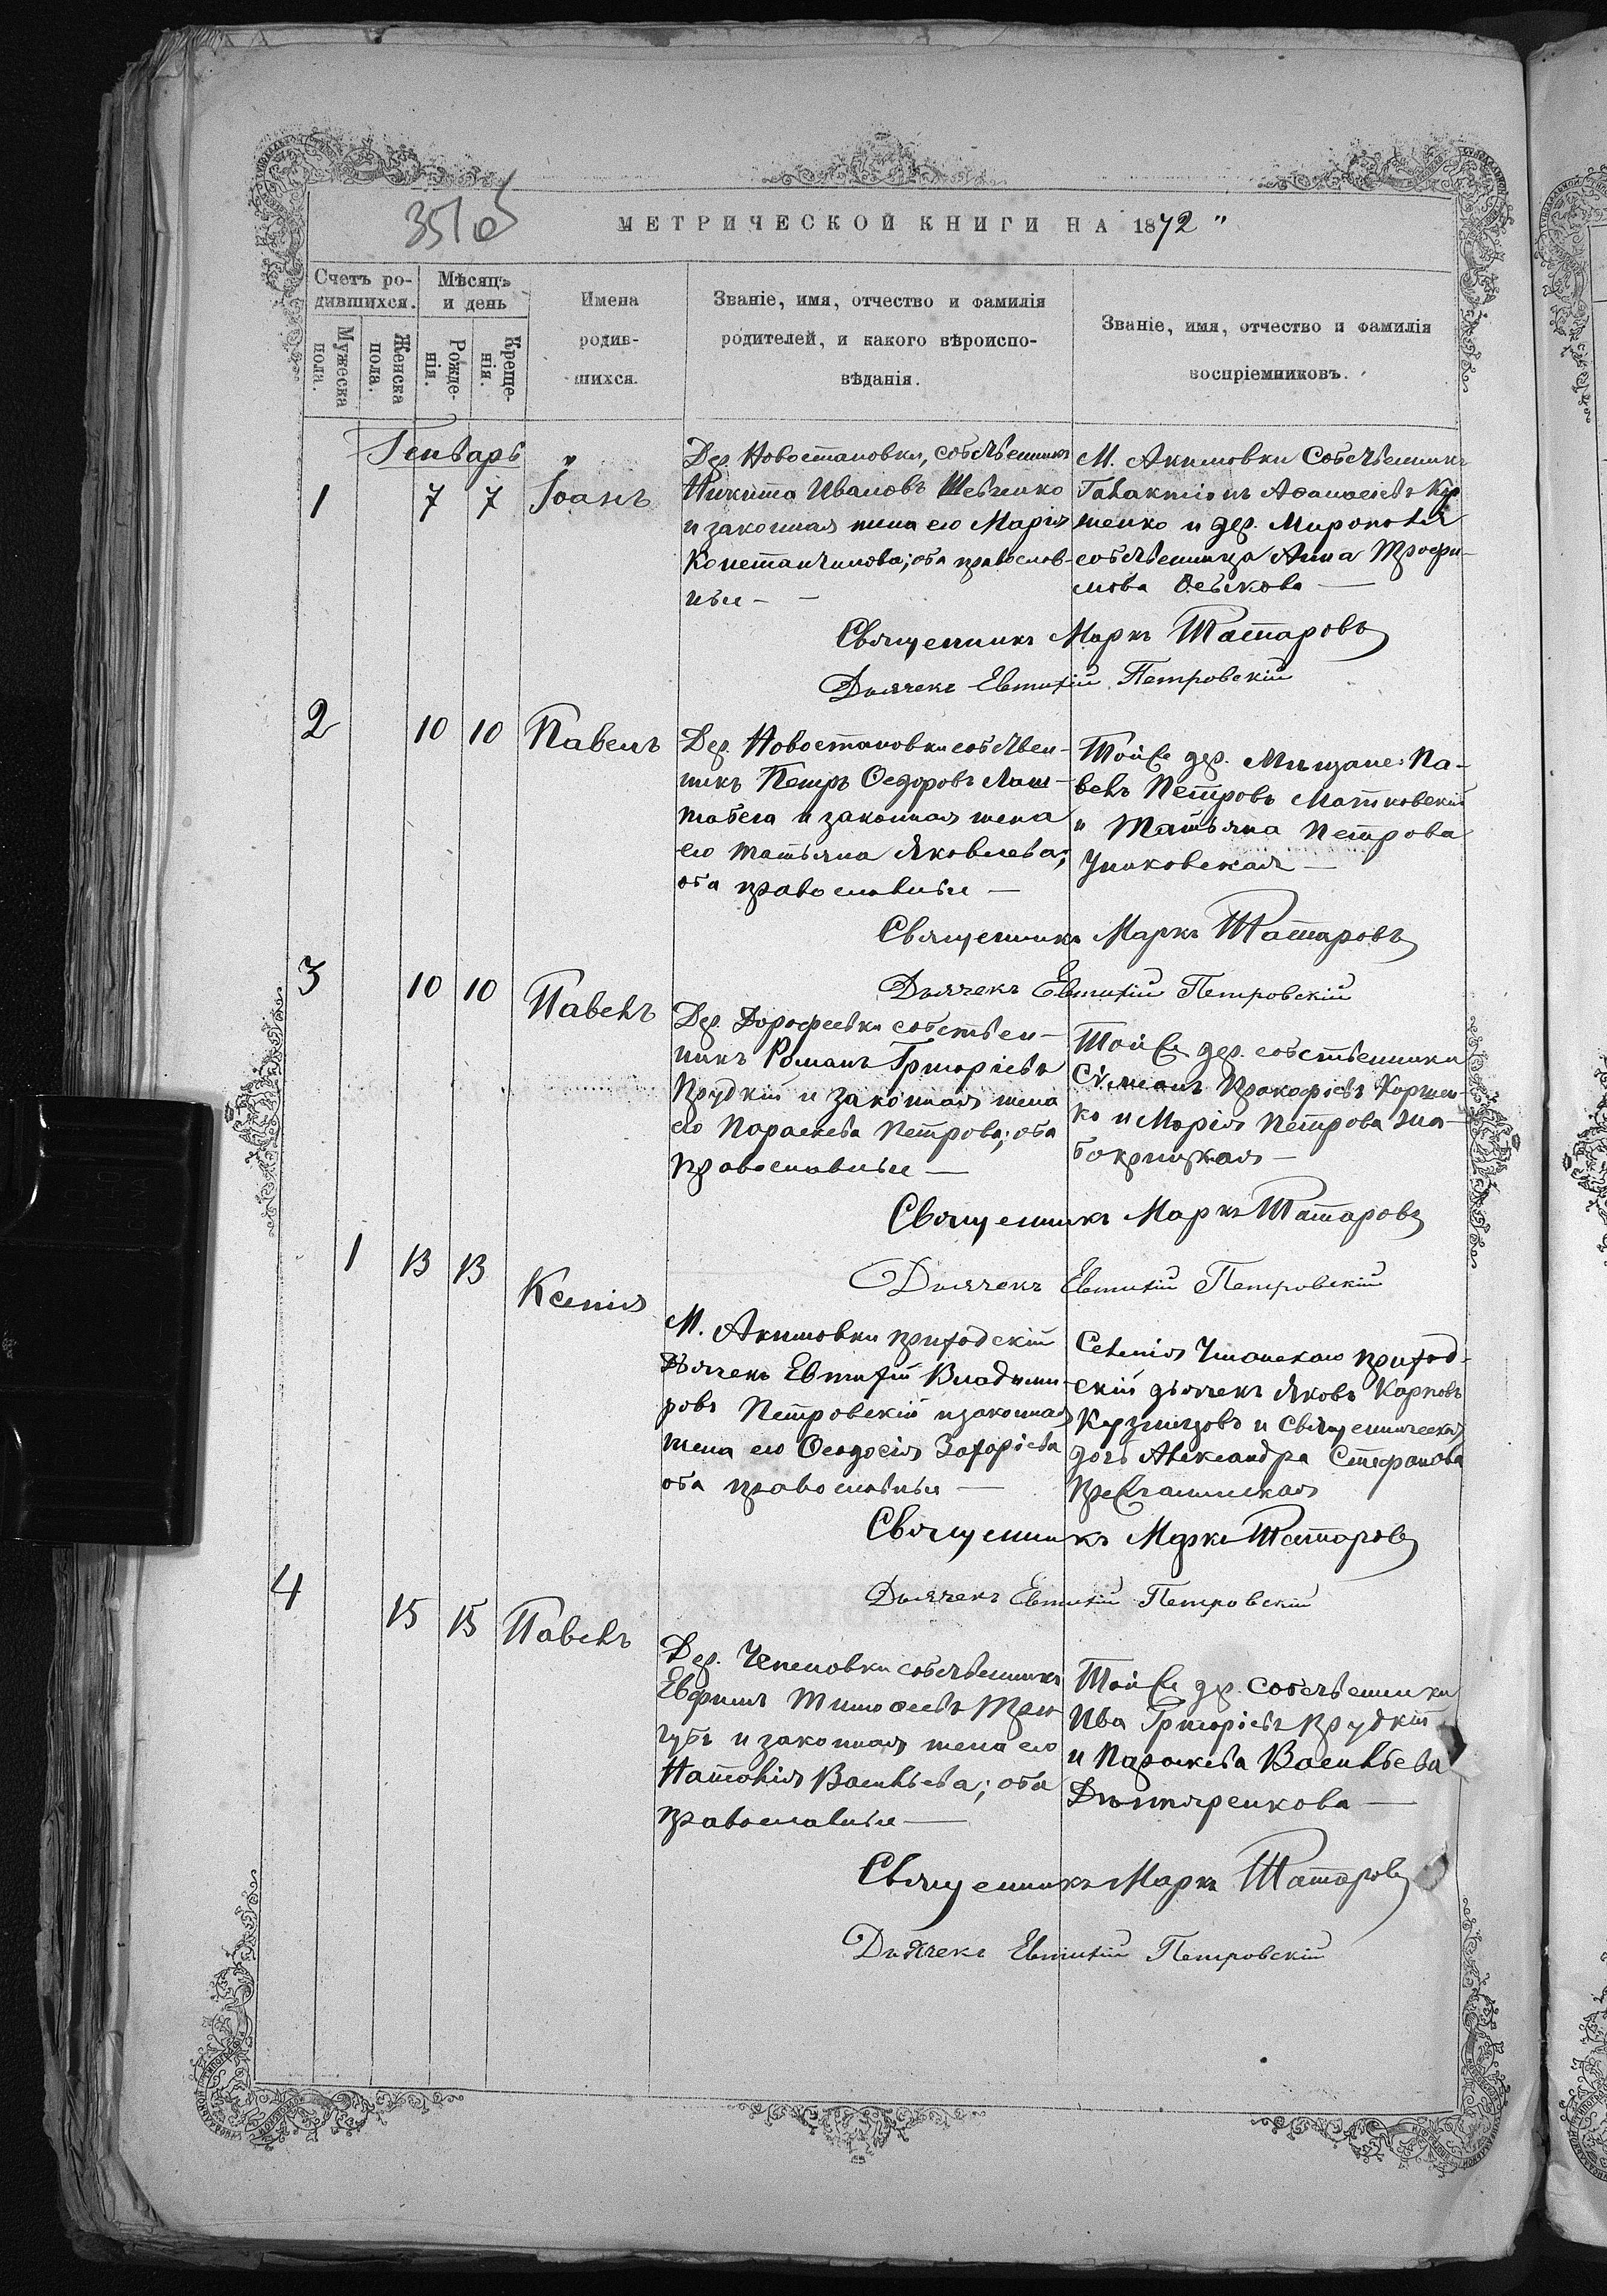 МЕТРИЧЕСКОЙ КНИГИ НА 1872
Счетъ ро-
дившихся.
Мужеска
пола.
Женска
пола.
Мѣсяцъ
и день
Рожде-
нія.
Креще-
нія.
Имена
родив-
шихся.
Званіе, имя, отчество и фамилія
родителей, и какого вѣроиспо-
вѣданія.
Званіе, имя, отчество и фамилія
воспріемниковъ.
Генварь
1 7 7 Іоанъ
Дер. Новостановки, собственникъ
Никита Ивановъ Шевченко
и законная жена его Марія
Константинова; оба православ-
ные
М. Акимовки собственникъ
Галактіонъ Аѳанасіевъ
и дер.
собственница Анна Трофи-
мова
Священникъ Маркъ Татаровъ
Дьячекъ Евтихій Петровскій
2 10 10 Павелъ
Дер. Новостановки собствен-
никъ Петръ Ѳедоровъ
и законная жена
его Татьяна Яковлева;
оба православные
Той же дер. Мѣщане Па-
велъ Петровъ Матковскій
и Татьяна Петрова
Священникъ Маркъ Татаровъ
Дьячекъ Евтихій Петровскій
3 10 10 Павелъ
Дер. Дорофеевки собствен-
никъ Романъ Григоріевъ
Прудкій и законная жена
его Параскева Петрова; оба
православные
Той же дер. собственники
Сѵмеонъ Прокофіевъ Коржен-
ко и Марія Петрова
Священникъ Маркъ Татаровъ
Дьячекъ Евтихій Петровскій
1 13 13 Ксенія
М. Акимовки приходскій
Дьячекъ Евтихій Владими-
ровъ Петровскій и законная
жена его Ѳеодосія Захаріева
оба православные
Селенія приход-
скій дьячекъ Яковъ Карповъ
Кузнецовъ и священническая
дочь Александра Стефанова
Священникъ Маркъ Татаровъ
Дьячекъ Евтихій Петровскій
4 15 15 Павелъ
Дер. Чепеловки собственникъ
Евфимъ Тимоѳеевъ Три-
губъ и законная жена его
Наталія Васильева; оба
православные
Той же дер. собственники
Ива Григоріевъ Прудкій
и Параскева Васильева
Священникъ Маркъ Татаровъ
Дьячекъ Евтихій Петровскій